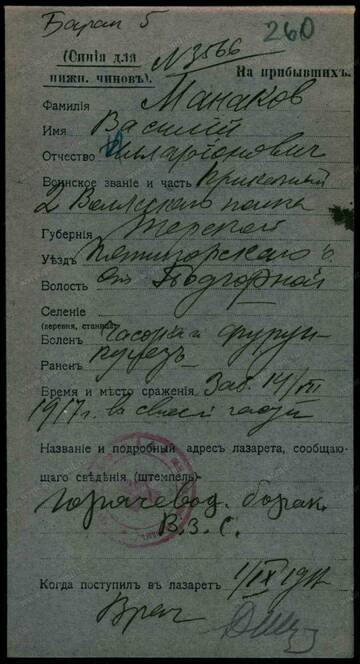 Барак 5
260
(Синiя для
нижн. чиновъ).
№3566
На прибывшихъ.
Фамилiя Манаков
Имя Василiй
Отчество Илларiонович
Воинское званiе и часть Приказный
2 Волжскаго полка
Губернiя Терской
Уѣздъ Пятигорскаго о.
Волость ст. Подгорной
Селенiе
(деревня, станица)
Боленъ Часотка и фурун-
кулез
Раненъ
Время и мѣсто сраженiя Заб. 14/VII
1917г. в своей части
Названiе и подробный адресъ лазарета, сообщаю-
щаго свѣдѣнiя (штемпель)
Горячевод. барак.
В.З.С.
Когда поступилъ въ лазаретъ 1/IX 1917
Врач